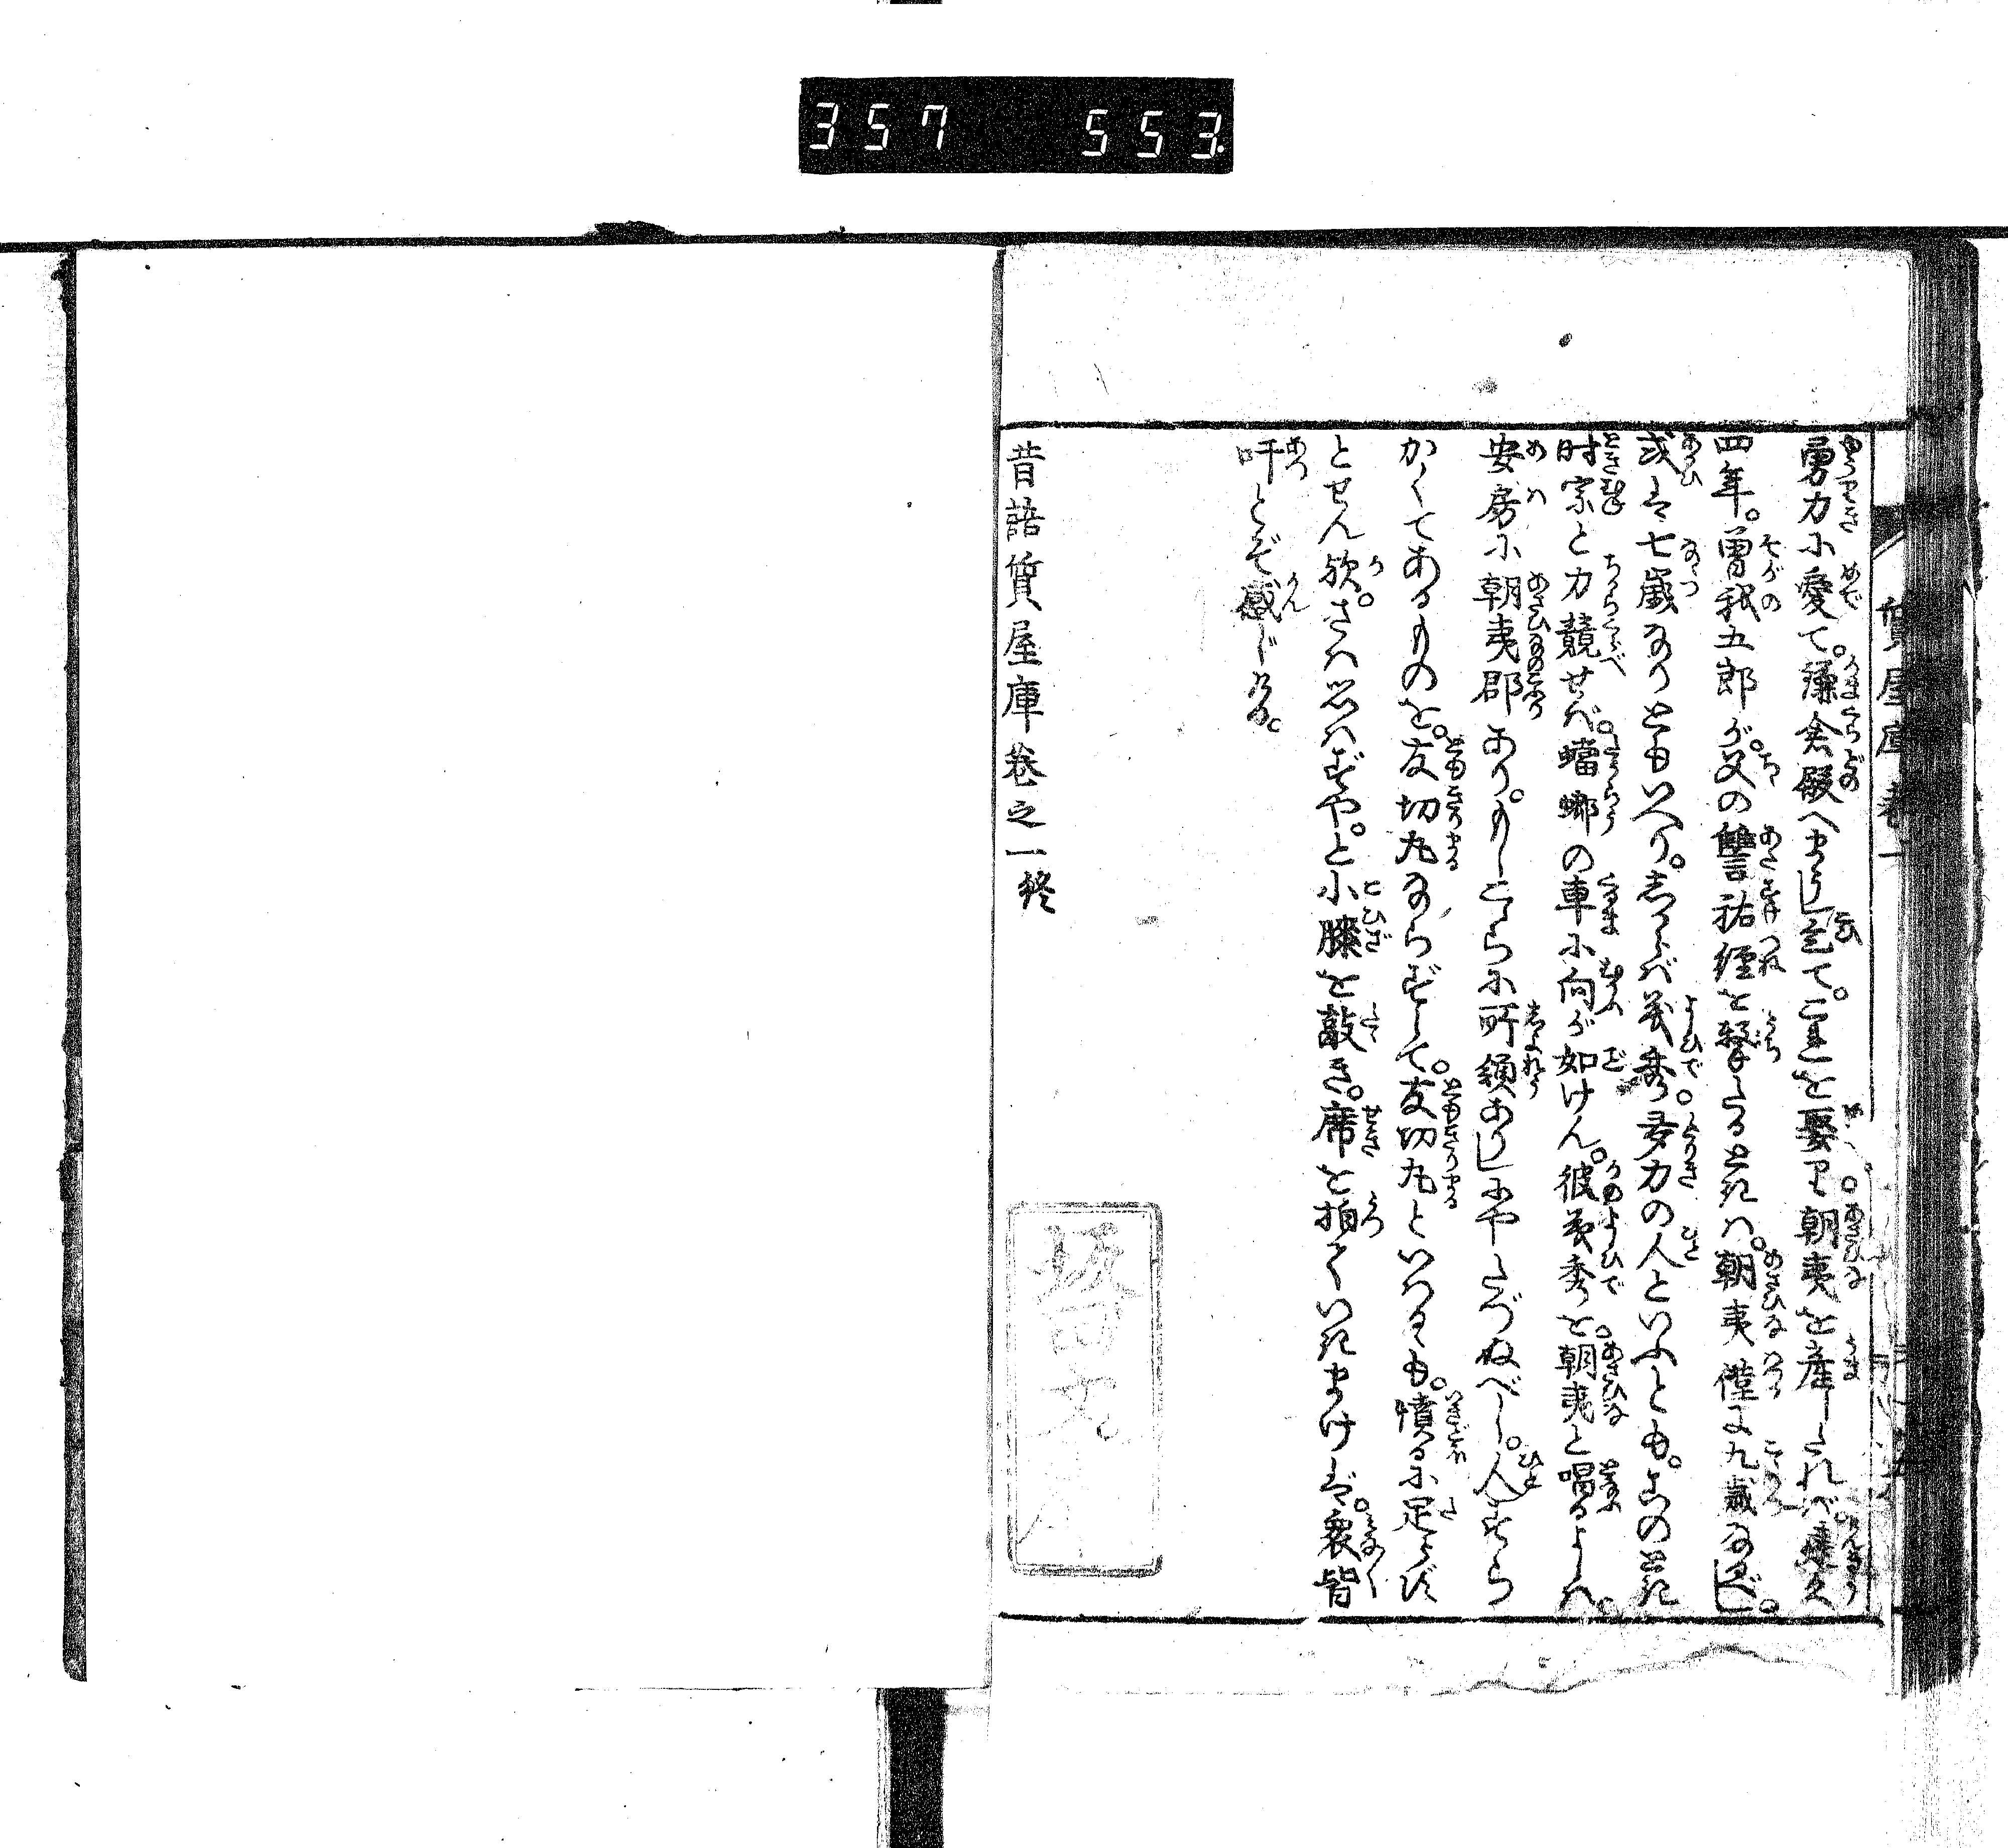 357 553
質屋庫巻一
勇力に愛て。鎌倉殿へまうし乞て。これを娶り朝夷を産したれば。建久
四年。曽我五郎が。父の讐祐経を撃たるときは。朝夷僅に九歳なるべし。
或は七歳なりともいへり。しからば義秀。多力の人といふとも。このとき
時宗と力競せば。蟷螂の車に向が如けん。彼義秀を。朝夷と唱るよしは。
安房に朝夷郡あり。もしこゝらに所領ありしにやたづぬべし。人すら
かくてあるものを。友切丸ならずして。友切丸といはるゝも。憤るに足らず
とせん歟。さは思はずや。と小膝を敲き。席を拍てくいきまけば。衆皆
吁とぞ感じける。
昔語質屋庫巻之一終